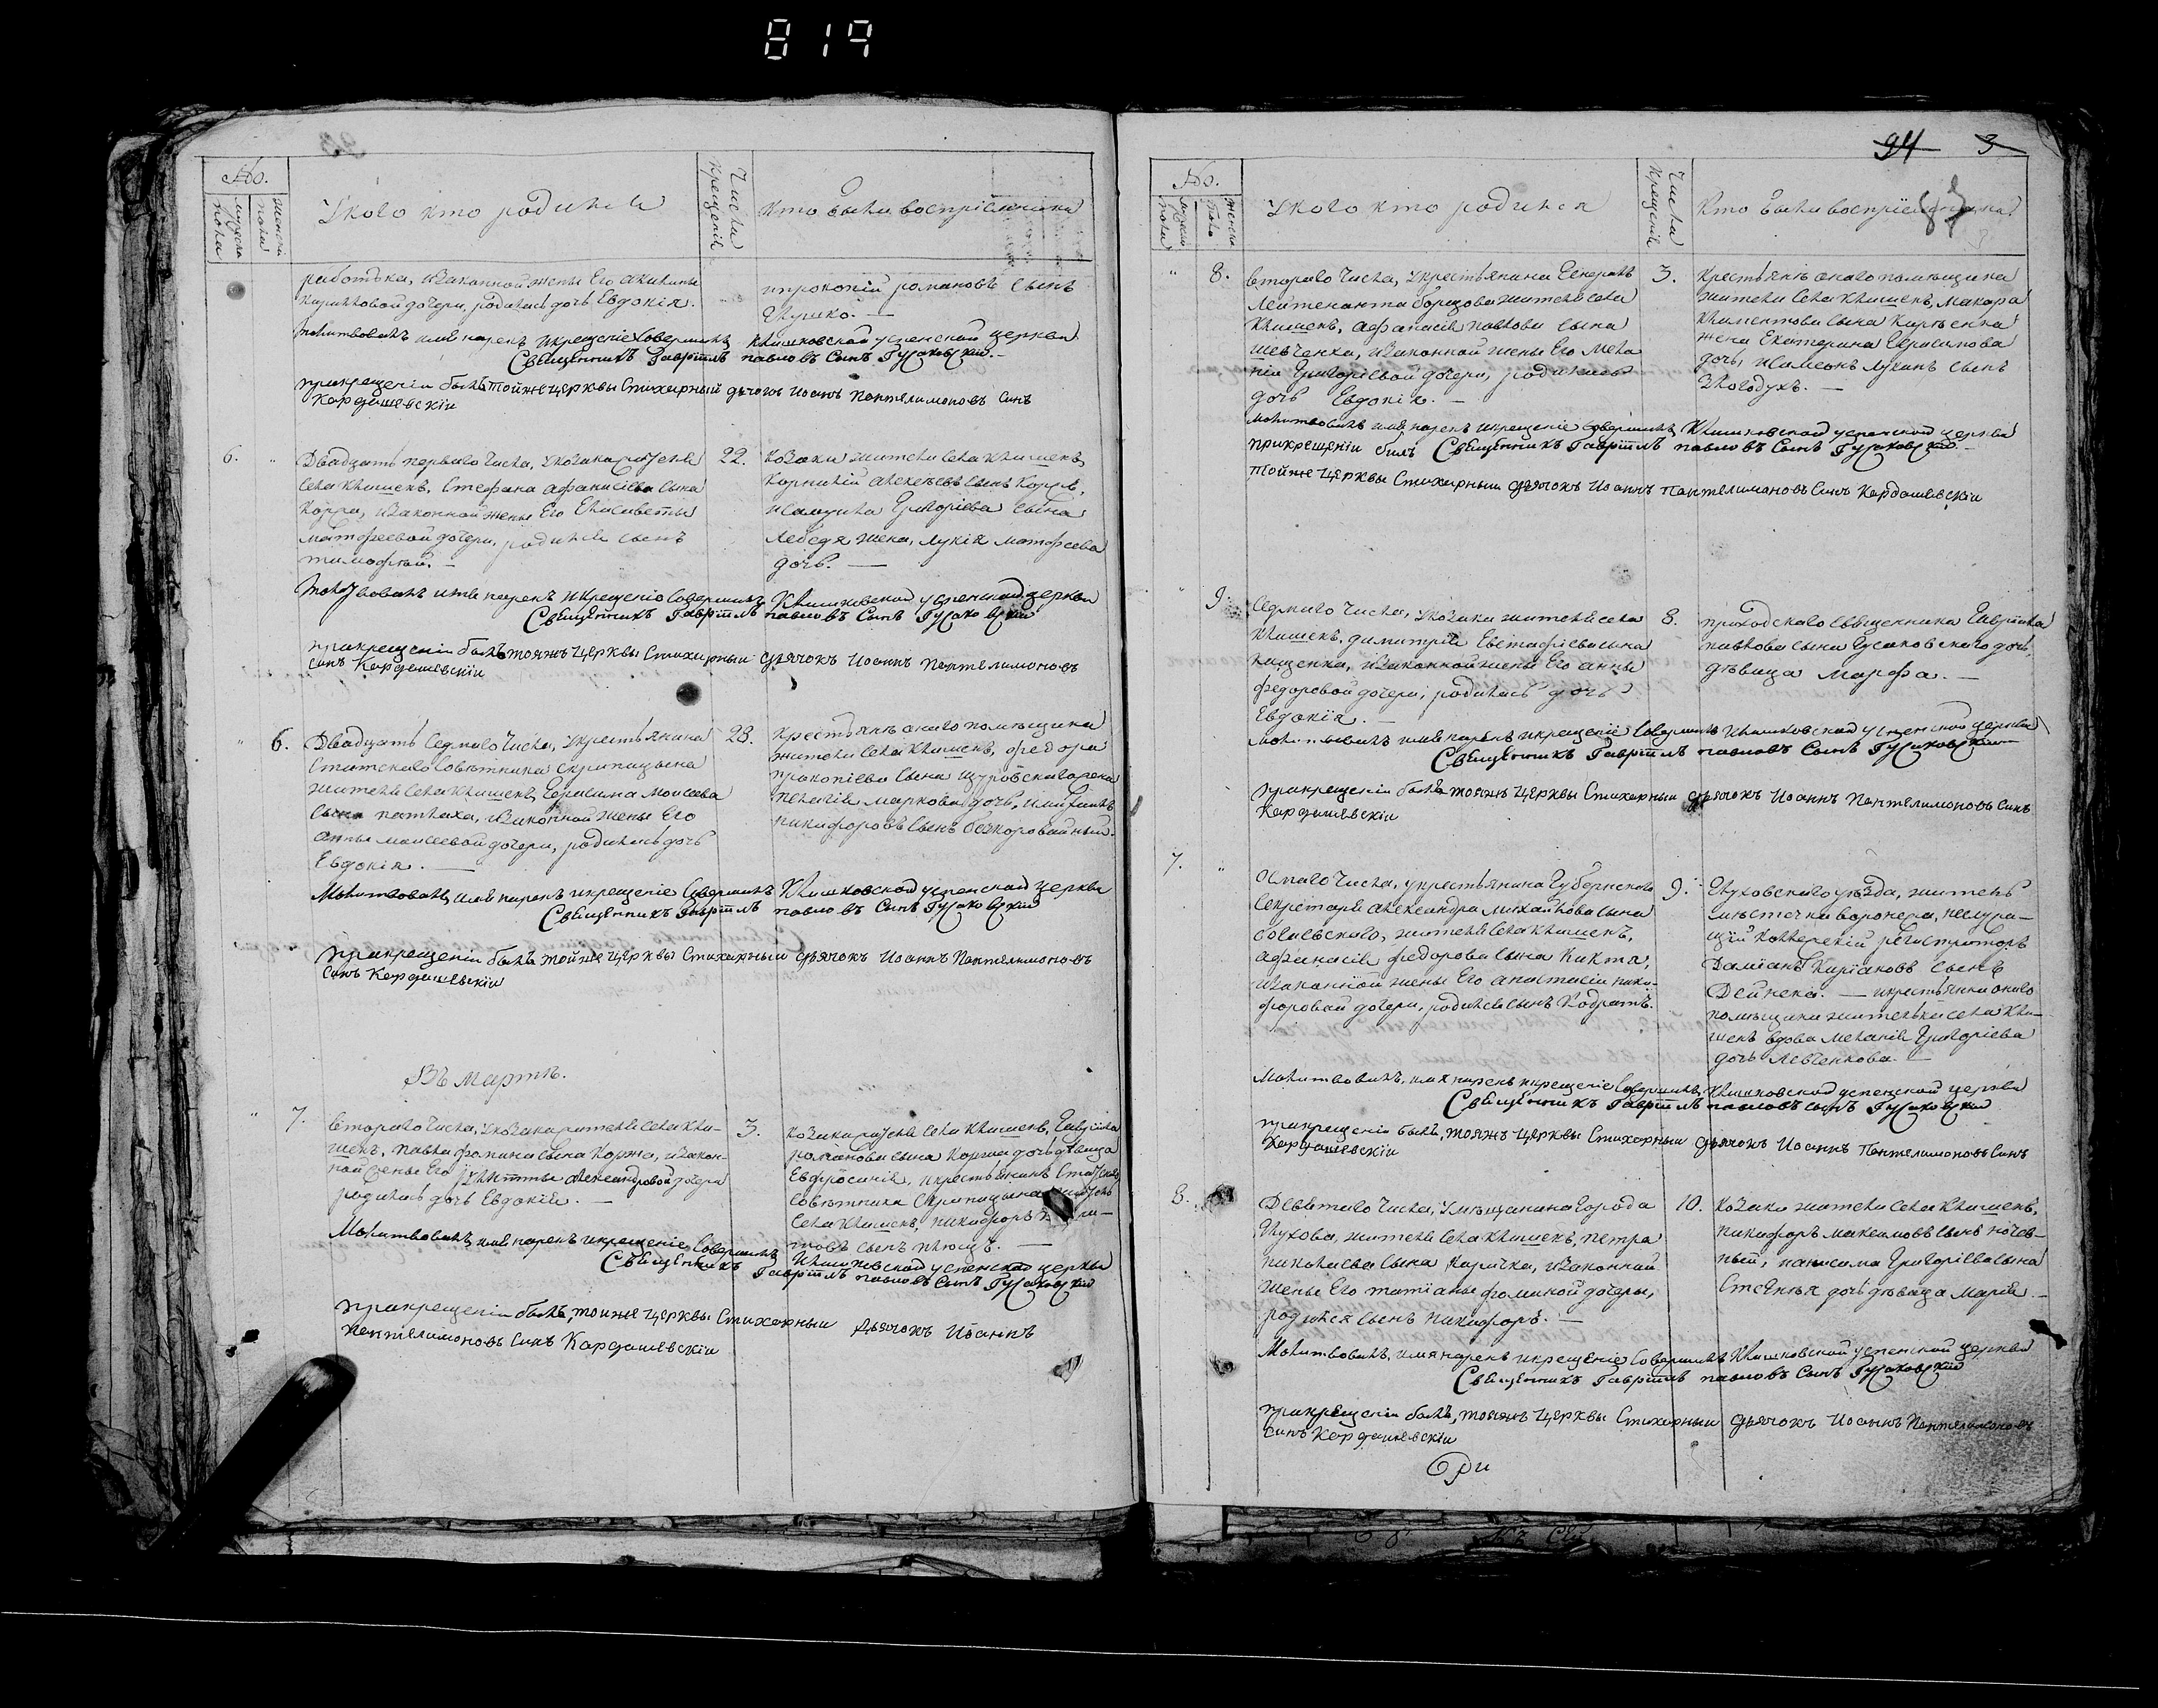 819
No.
мужеска пола
женска пола
У кого кто родился
Числа крещенія
Кто были воспріемники
работника, и законной жены Его
Кириловой дочери, родилась дочь Евдокія.
прокопій романовъ сынъ
Глушко. —
Молитвовалъ имя нарекъ и крещеніе совершилъ Клишковской успенской церкви
Священникъ Гавріилъ павловъ Сынъ Гусаковскій
при крещеніи былъ тойже церкви Стихарный дячокъ Иоанъ Пантелимоновъ Синъ
Кардашевскіи
6.
Двадцать перваго числа, у козака жителя
села Клишекъ, Стефана афанасіева сына
Коржа, и законной жены Его Елисаветы
Матфеевой дочери, родился сынъ
тимофей. —
22.
Козаки жители села Клишекъ,
Корнилій алексеевъ сынъ Коржъ,
и Самуила Григоріева сына
Лебедя жена, лукія матфеева
дочь. —
Молитвовалъ имя нарекъ и крещеніе Совершилъ Клишковской успенской церкви
Священникъ Гавріилъ павловъ Сынъ Гусаковскій
при крещеніи былъ тояжъ церквы Стихарныи дьячокъ Иоаннъ Пантелимоновъ
синъ Кардашевскіи
6.
Двадцать седмаго числа, у крестьянина
Статскаго Совѣтника Скрипицына
жителя села Клишекъ, Герасима Моисеева
сына патлаха, и законной жены Его
анны моисеевой дочери, родилась дочь
Евдокія. —
28.
Крестьянъ онаго помѣщика
жители села Клишекъ, федора
прокопіева сына щуровскаго жена
пелагія маркова дочь, и
никифоровъ сынъ безкоровайный.
Молитвовалъ, имя нарекъ и крещеніе Совершилъ Клишковской успенской церкви
Священникъ Гавріилъ павловъ Сынъ Гусаковскій
При крещеніи былъ тойже церквы Стихарныи дьячокъ Иоаннъ Пантелимоновъ
Синъ Кардашевскіи
Въ Мартѣ.
7.
втораго числа, у козака жителя села Кли-
шекъ, павла фомина сына Коржа, и закон-
ной жены Его александровой дочери
родилась дочь Евдокія. —
3.
козака жителя села Клишекъ, Гавріила
романова сына Коржа дочь дѣвица
Евфросинія, и крестьянинъ Статскаго
совѣтника Скрипицына житель
села Клишекъ, никифоръ
сынъ
Молитвовалъ, имя нарекъ и крещеніе Совершилъ Клишковской успенской церкви
Священникъ Гавріилъ павловъ Сынъ Гусаковскій
При крещеніи былъ, тойже церквы Стихарныи дьячокъ Иоаннъ
Пантелимоновъ Синъ Кардашевскіи
94 3
No.
мужеска пола
женска пола
У кого кто родился
Числа крещенія
Кто были воспріемники
8.
втораго числа, у крестьянина Генералъ
Лейтенанта борщова жителя села
Клишекъ, афанасія павлова сына
Шевченка, и законной жены Его Мела
ніи Григоріевой дочери, родилась
дочь Евдокія. —
3.
Крестьянъ онаго помѣщика
жители села Клишекъ, макара
климентова сына
жена Екатерина Герасимова
дочь, и Самсонъ лукинъ сынъ
—
Молитвовалъ имя нарекъ и крещеніе совершилъ Клишковской успенской церкви
Священникъ Гавріилъ павловъ Сынъ Гусаковскій
при крещеніи билъ
тойже церквы Стихарныи дьячокъ Иоаннъ Пантелимоновъ Синъ Кардашевскіи
9.
Седмаго числа, у козака жителя села
Клишекъ, димитрія Евстафіева сына
Кащенка, и законной жены Его анны
федоровой дочери, родилась дочь
Евдокія. —
8.
приходскаго священника Гавріила
павлова сына Гусаковскаго дочь,
дѣвица Марфа. —
Молитвовалъ имя нарекъ и крещеніе Совершилъ Клишковской успенской церкви
Священникъ Гавріилъ павловъ Сынъ Гусаковскій
При крещеніи былъ тояжъ церквы Стихарныи дьячокъ Иоаннъ Пантелимоновъ Синъ
Кардашевскіи
7.
Осмаго числа, у крестьянина Губернскаго
Секретаря александра михайлова сына
жителя села Клишекъ,
афанасія федорова сына Кикта,
и законной жены Его анастасіи ники-
форовой дочери, родился сынъ Кодратъ.
9.
Глуховскаго уѣзда, житель
мѣстечка воронежа,
Коллежскій регистраторъ
Даміанъ Киріаковъ сынъ
Дейнека. — и крестьянка онаго
помѣщика жителька села Кли-
шекъ вдова меланія Григоріева
дочь Левченкова. —
Молитвовалъ, имя нарекъ и крещеніе Совершилъ, Клишковской успенской церкви
Священникъ Гавріилъ павловъ сынъ Гусаковскій
при крещеніи былъ, тояжъ церквы Стихарныи дьячокъ Иоаннъ Пантелимоновъ Синъ
Кардашевскіи
8.
Девятаго числа, у мѣщанина города
Глухова, жителя села Клишекъ, петра
николаева сына и законной
жены Его татіаны фоминой дочери,
родился сынъ Никифоръ. —
10.
Козаки жители села Клишекъ,
никифоръ максимовъ сынъ
Григоріева сына
дочь дѣвица Марія —
Молитвовалъ, имя нарекъ и крещеніе Совершилъ Клишковской успенской церкви
Священникъ Гавріилъ павловъ Сынъ Гусаковскій
при крещеніи былъ, тояжъ церквы Стихарныи дьячокъ Иоаннъ Пантелимоновъ
Синъ Кардашевскіи